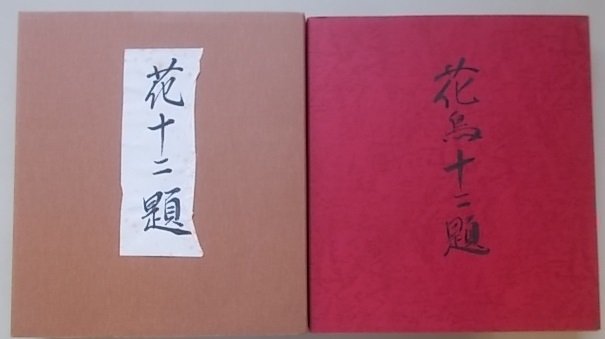 花十二題
花鳥十二題